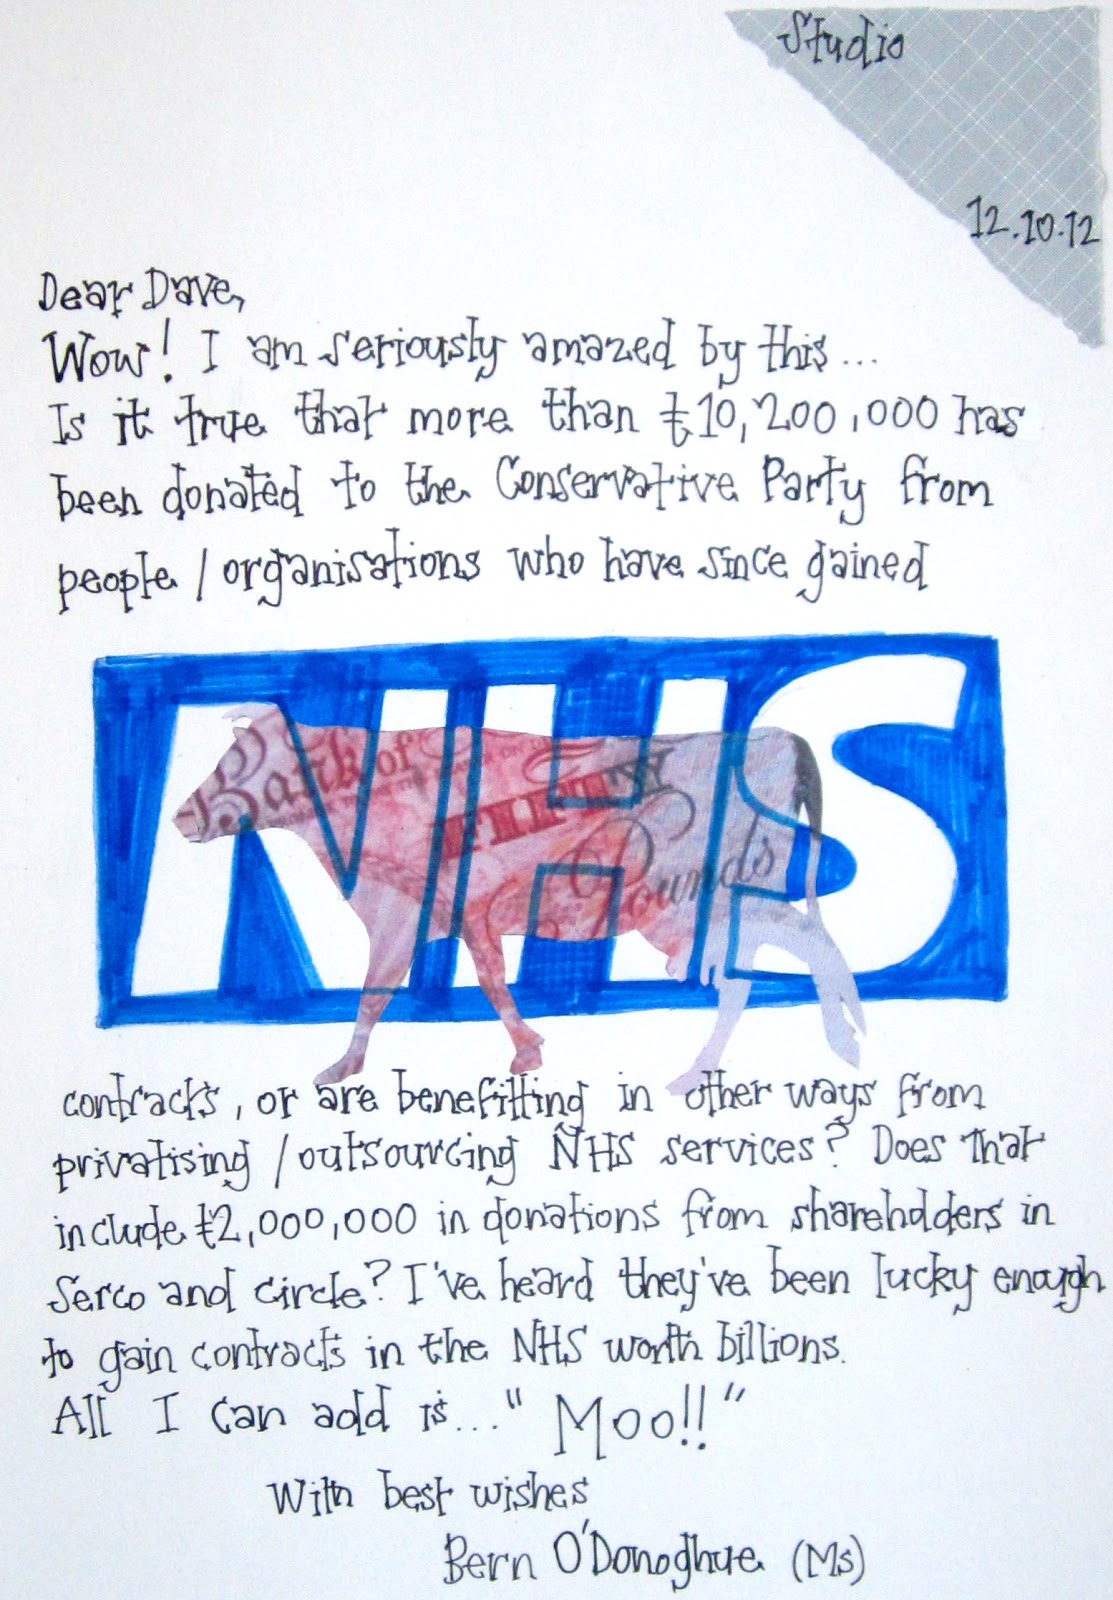 Studio
12.10.12
Dear Dave,
Wow! I am seriously amazed by this...
Is it true that more than £10,200,000 has
been donated to the Conservative Party from
people / organisations who have since gained
NHS
Bank of
FIFTY
Pounds
contracts, or are benefitting in other ways from
privatising / outsourcing NHS services? Does that
include £2,000,000 in donations from shareholders in
Serco and Circle? I've heard they've been lucky enough
to gain contracts in the NHS worth billions.
All I can add is... "Moo!!"
With best wishes
Bern O'Donoghue (Ms)